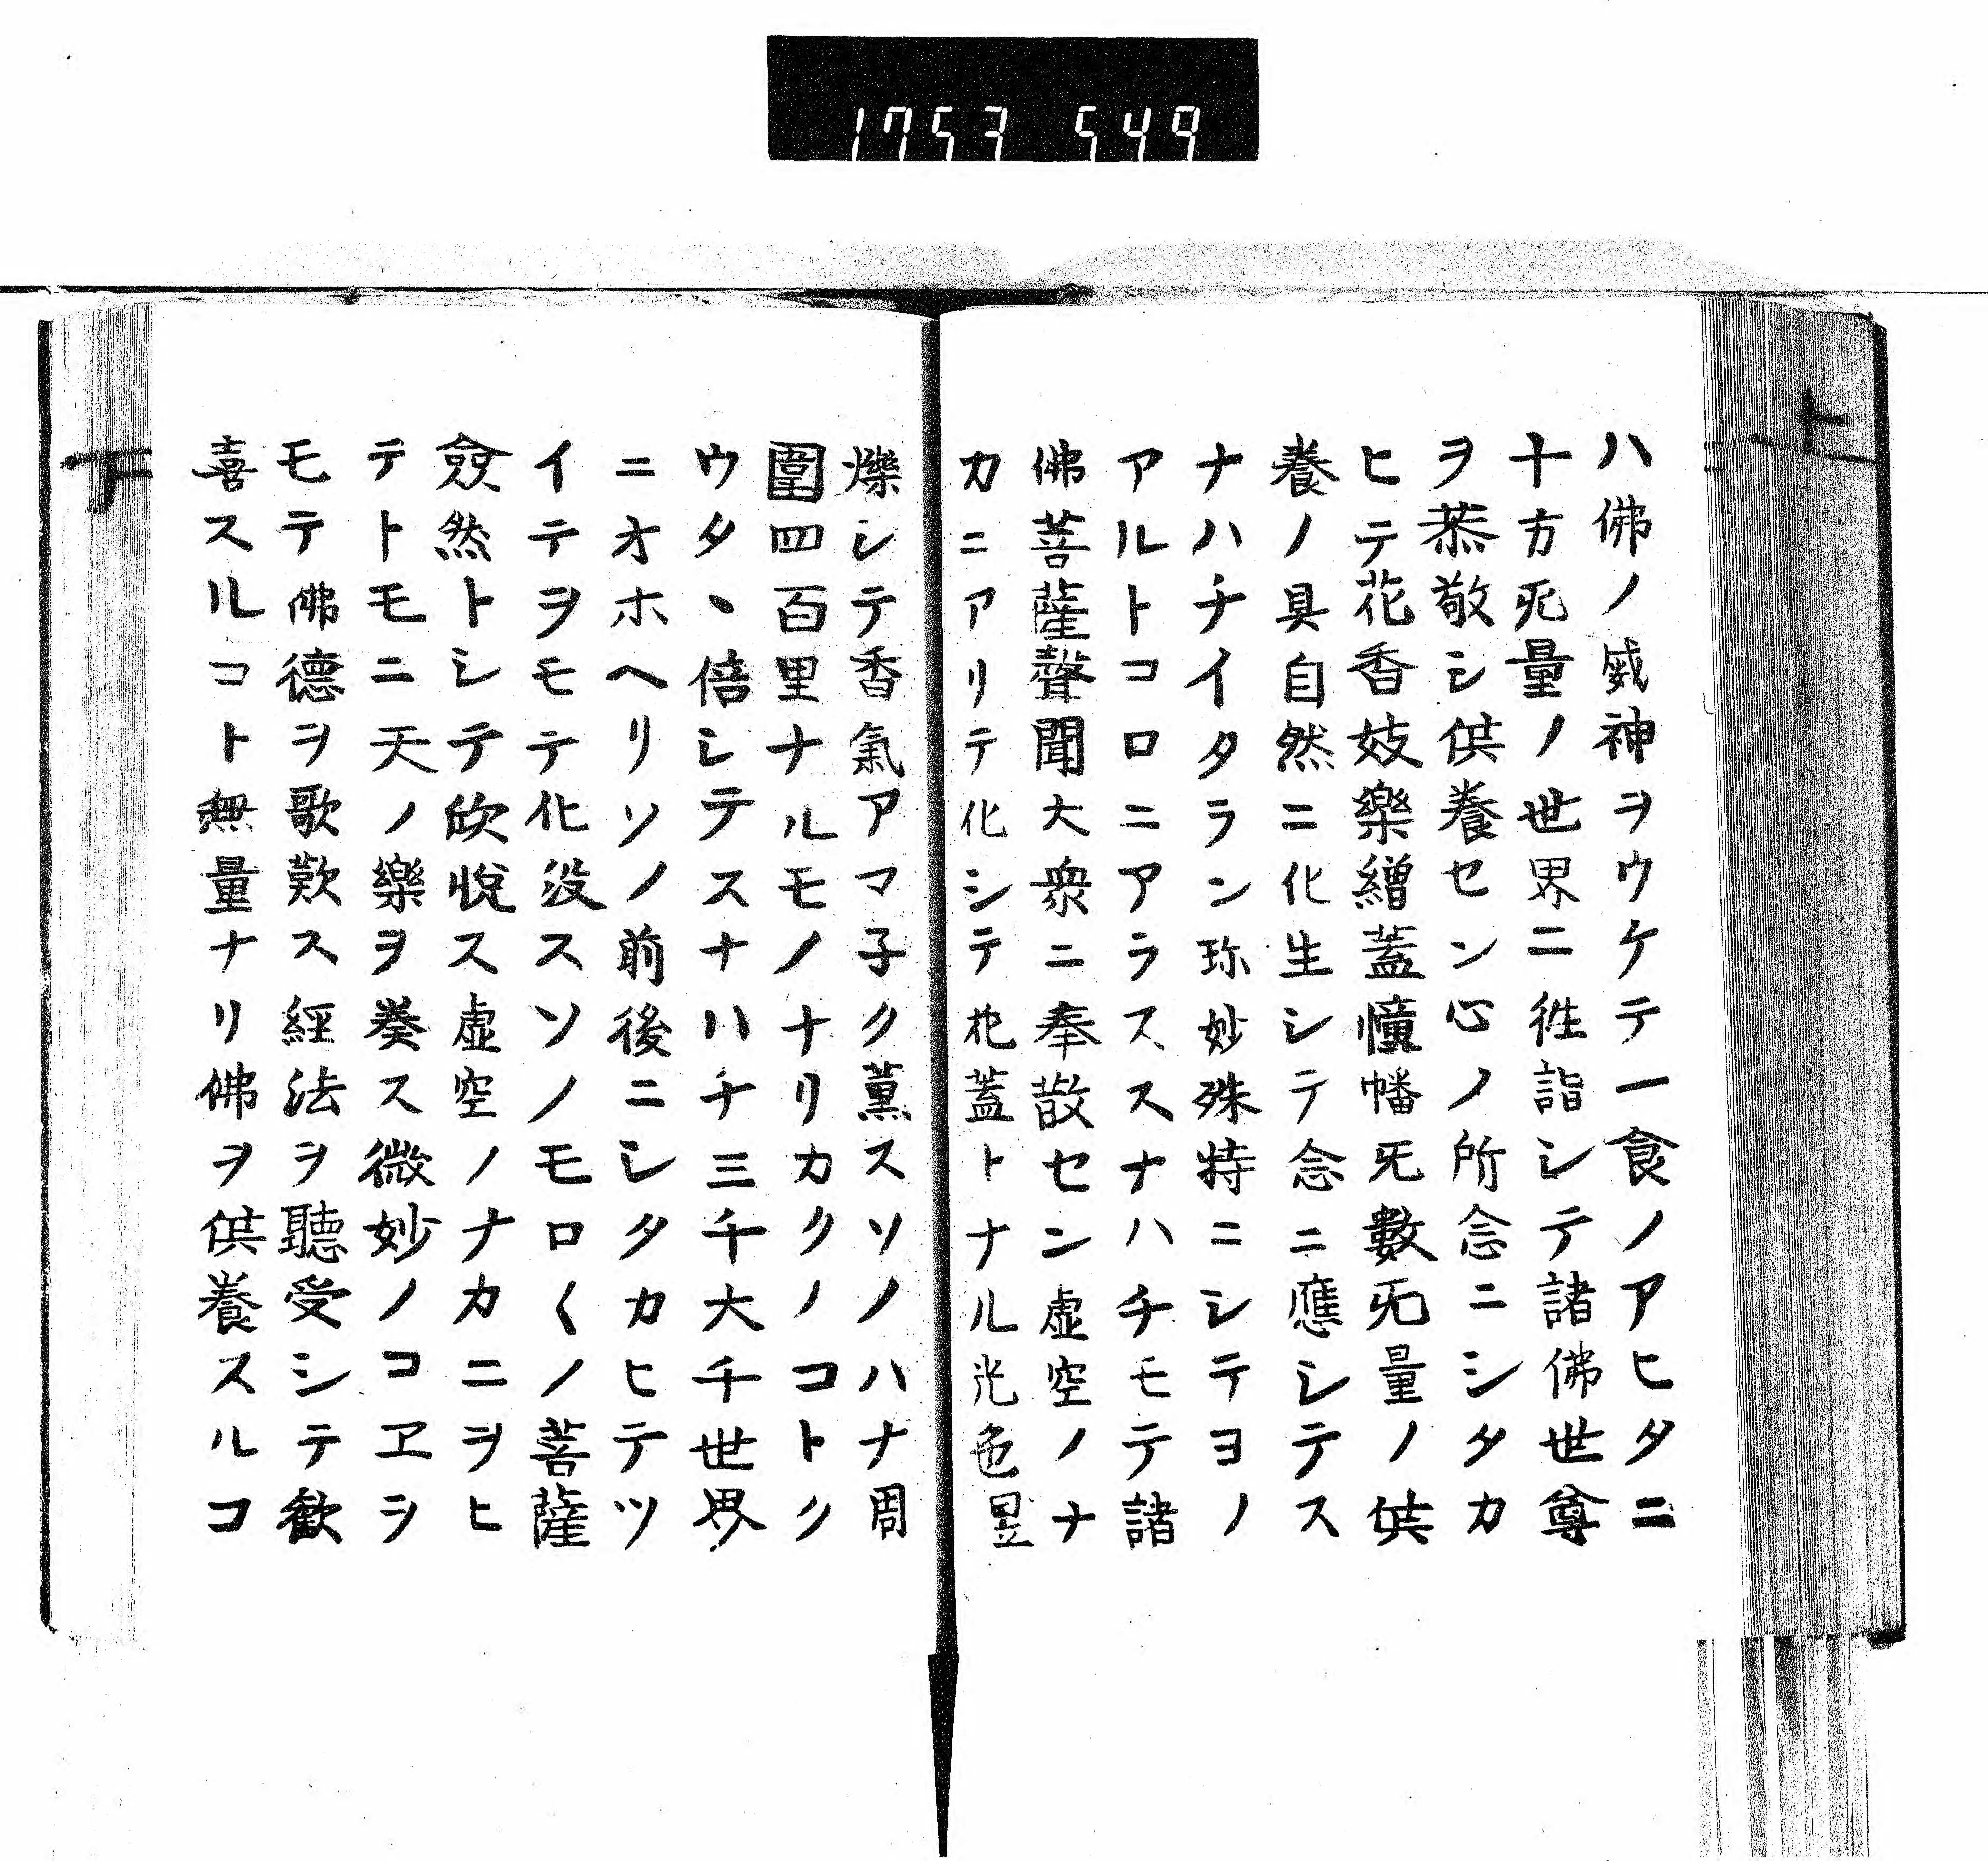 1753 549
ハ佛ノ威神ヲウケテ一食ノアヒタニ
十方无量ノ世界ニ徃詣シテ諸佛世尊
ヲ恭敬シ供養セン心ノ所念ニシタカ
ヒテ花香妓樂繒蓋幢幡无數无量ノ供
養ノ具自然ニ化生シテ念ニ應シテス
ナハチイタラン珎妙殊特ニシテヨノ
アルトコロニアラススナハチモテ諸
佛菩薩聲聞大衆ニ奉散セン虚空ノナ
カニアリテ化シテ花蓋トナル光色昱
爍シテ香氣アマ子ク薫スソノハナ周
圍四百里ナルモノナリカクノコトク
ウタヽ倍シテスナハチ三千大千世界
ニオホヘリソノ前後ニシタカヒテツ
イテヲモテ化没スソノモロ〱ノ菩薩
僉然トシテ欣悦ス虚空ノナカニヲヒ
テトモニ天ノ樂ヲ奏ス微妙ノコヱヲ
モテ佛德ヲ歌歎ス經法ヲ聽受シテ歡
喜スルコト無量ナリ佛ヲ供養スルコ